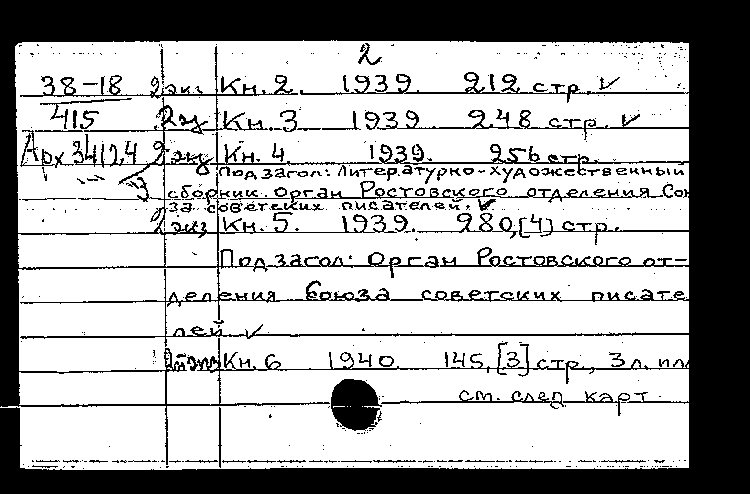 2
38-18 2 экз Кн. 2. 1939. 212 стр. ✓
415 2 экз Кн. 3 1939 248 стр. ✓
Арх 2 экз Кн. 4. 1939. 256 стр.
Подзагол: Литературно-художественный
3 сборник. Орган Ростовского отделения Сою
за советских писателей. ✓
2 экз Кн. 5. 1939. 280, [4] стр.
Подзагол: Орган Ростовского от-
деления Союза советских писате
лей ✓
Кн. 6 1940. 145, [3] стр., 3 л. илл
см. след карт.